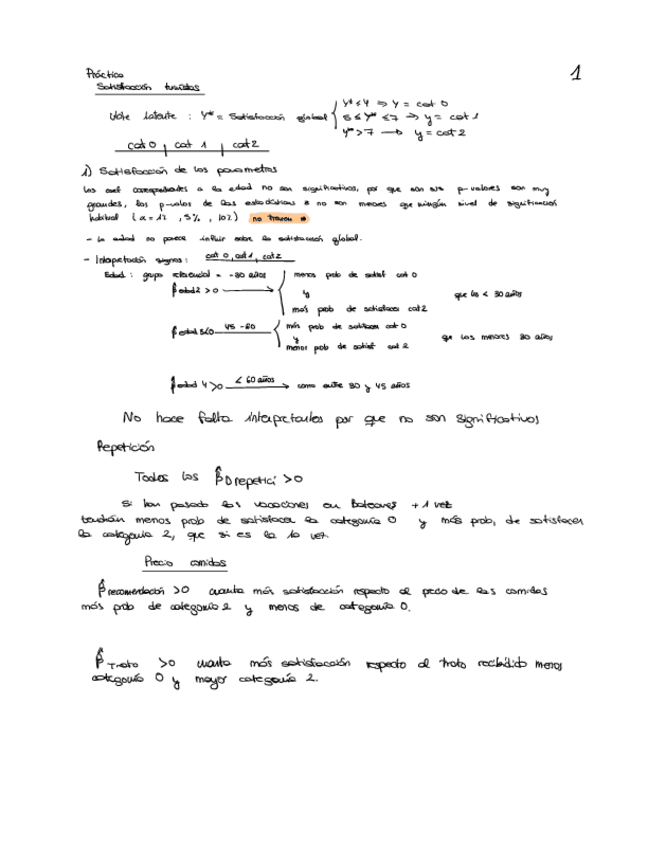 Práctica
1
Satisfacción turistas
Vble latente : Y* = Satisfacción global
Y* ≤ 4 ⇒ Y = cat 0
5 ≤ Y* ≤ 7 → y = cat 1
Y* > 7 → y = cat 2
cat 0 , cat 1 , cat 2
1) Satisfacción de los parametros
Los coef correspondientes a la edad no son significativos, por que son sus p-valores son muy
grandes, los p-valores de los estadísticos no son menores que ningún nivel de significación
habitual (α = 1% , 5% , 10%)
- La edad no parece influir sobre la satisfacción global.
- Interpretación signos: cat 0, cat 1, cat 2
Edad : grupo = -30 años
β̂edad2 > 0 →
menos prob de satisf cat 0
y
más prob de satisfacer cat 2
que los < 30 años
45 - 60
más prob de satisfacer cat 0
y
menor prob de satisf cat 2
que los menores 30 años
β̂edad 4 > 0 < 60 años → como entre 30 y 45 años
No hace falta interpretarlos por que no son significativos
Repetición
Todos los β̂D repetici > 0
Si han pasado las vacaciones en Baleares + 1 vez
tendrán menos prob de satisfacer la categoría 0 y más prob, de satisfacer
la categoría 2, que si es la 1a vez.
Precio comidas
β̂recomendación > 0 cuanta más satisfacción respecto al precio de las comidas
más prob de categoría 2 y menos de categoría 0.
β̂Trato > 0 cuanta más satisfacción respecto al trato recibido menos
categoría 0 y mayor categoría 2.